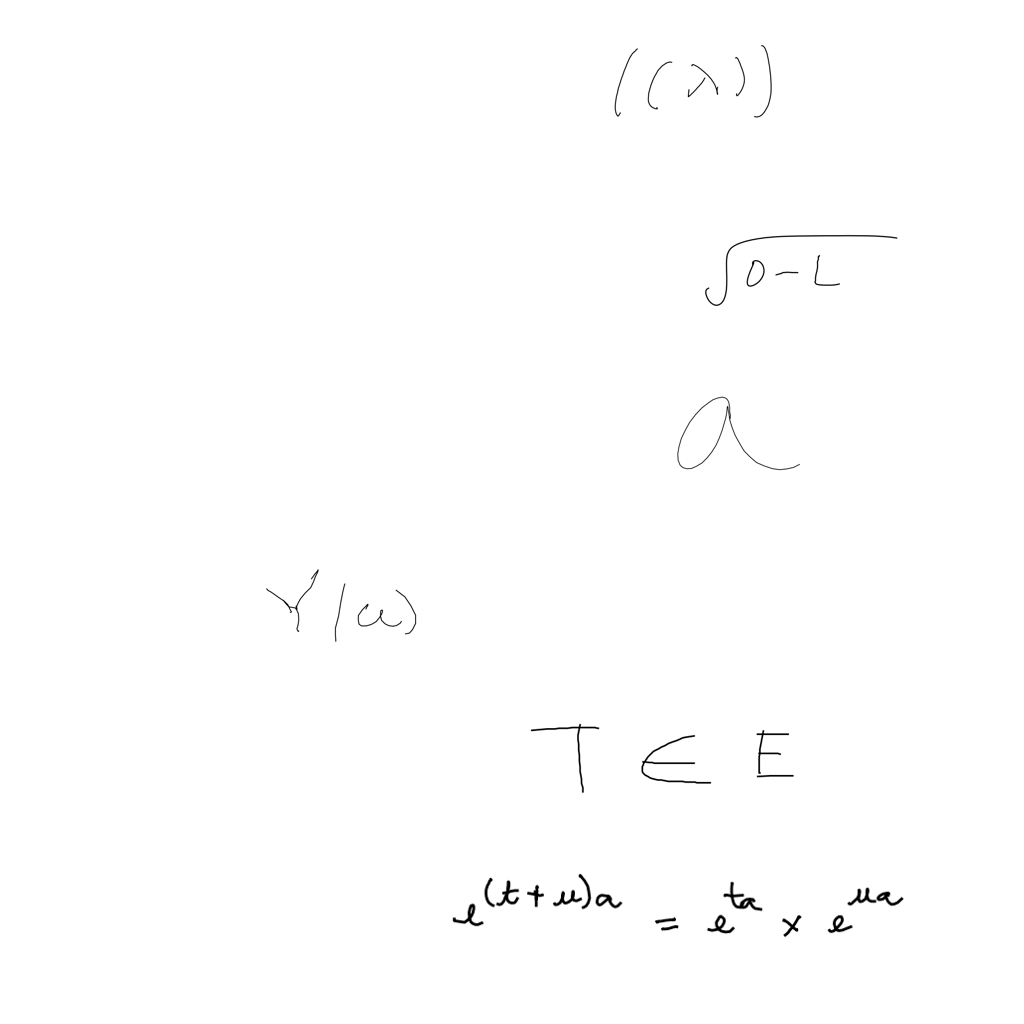 ((λ))
√(0-L)
a
Y(a)
T ∈ E
e^{(t+u)a} = e^{ta} × e^{ua}